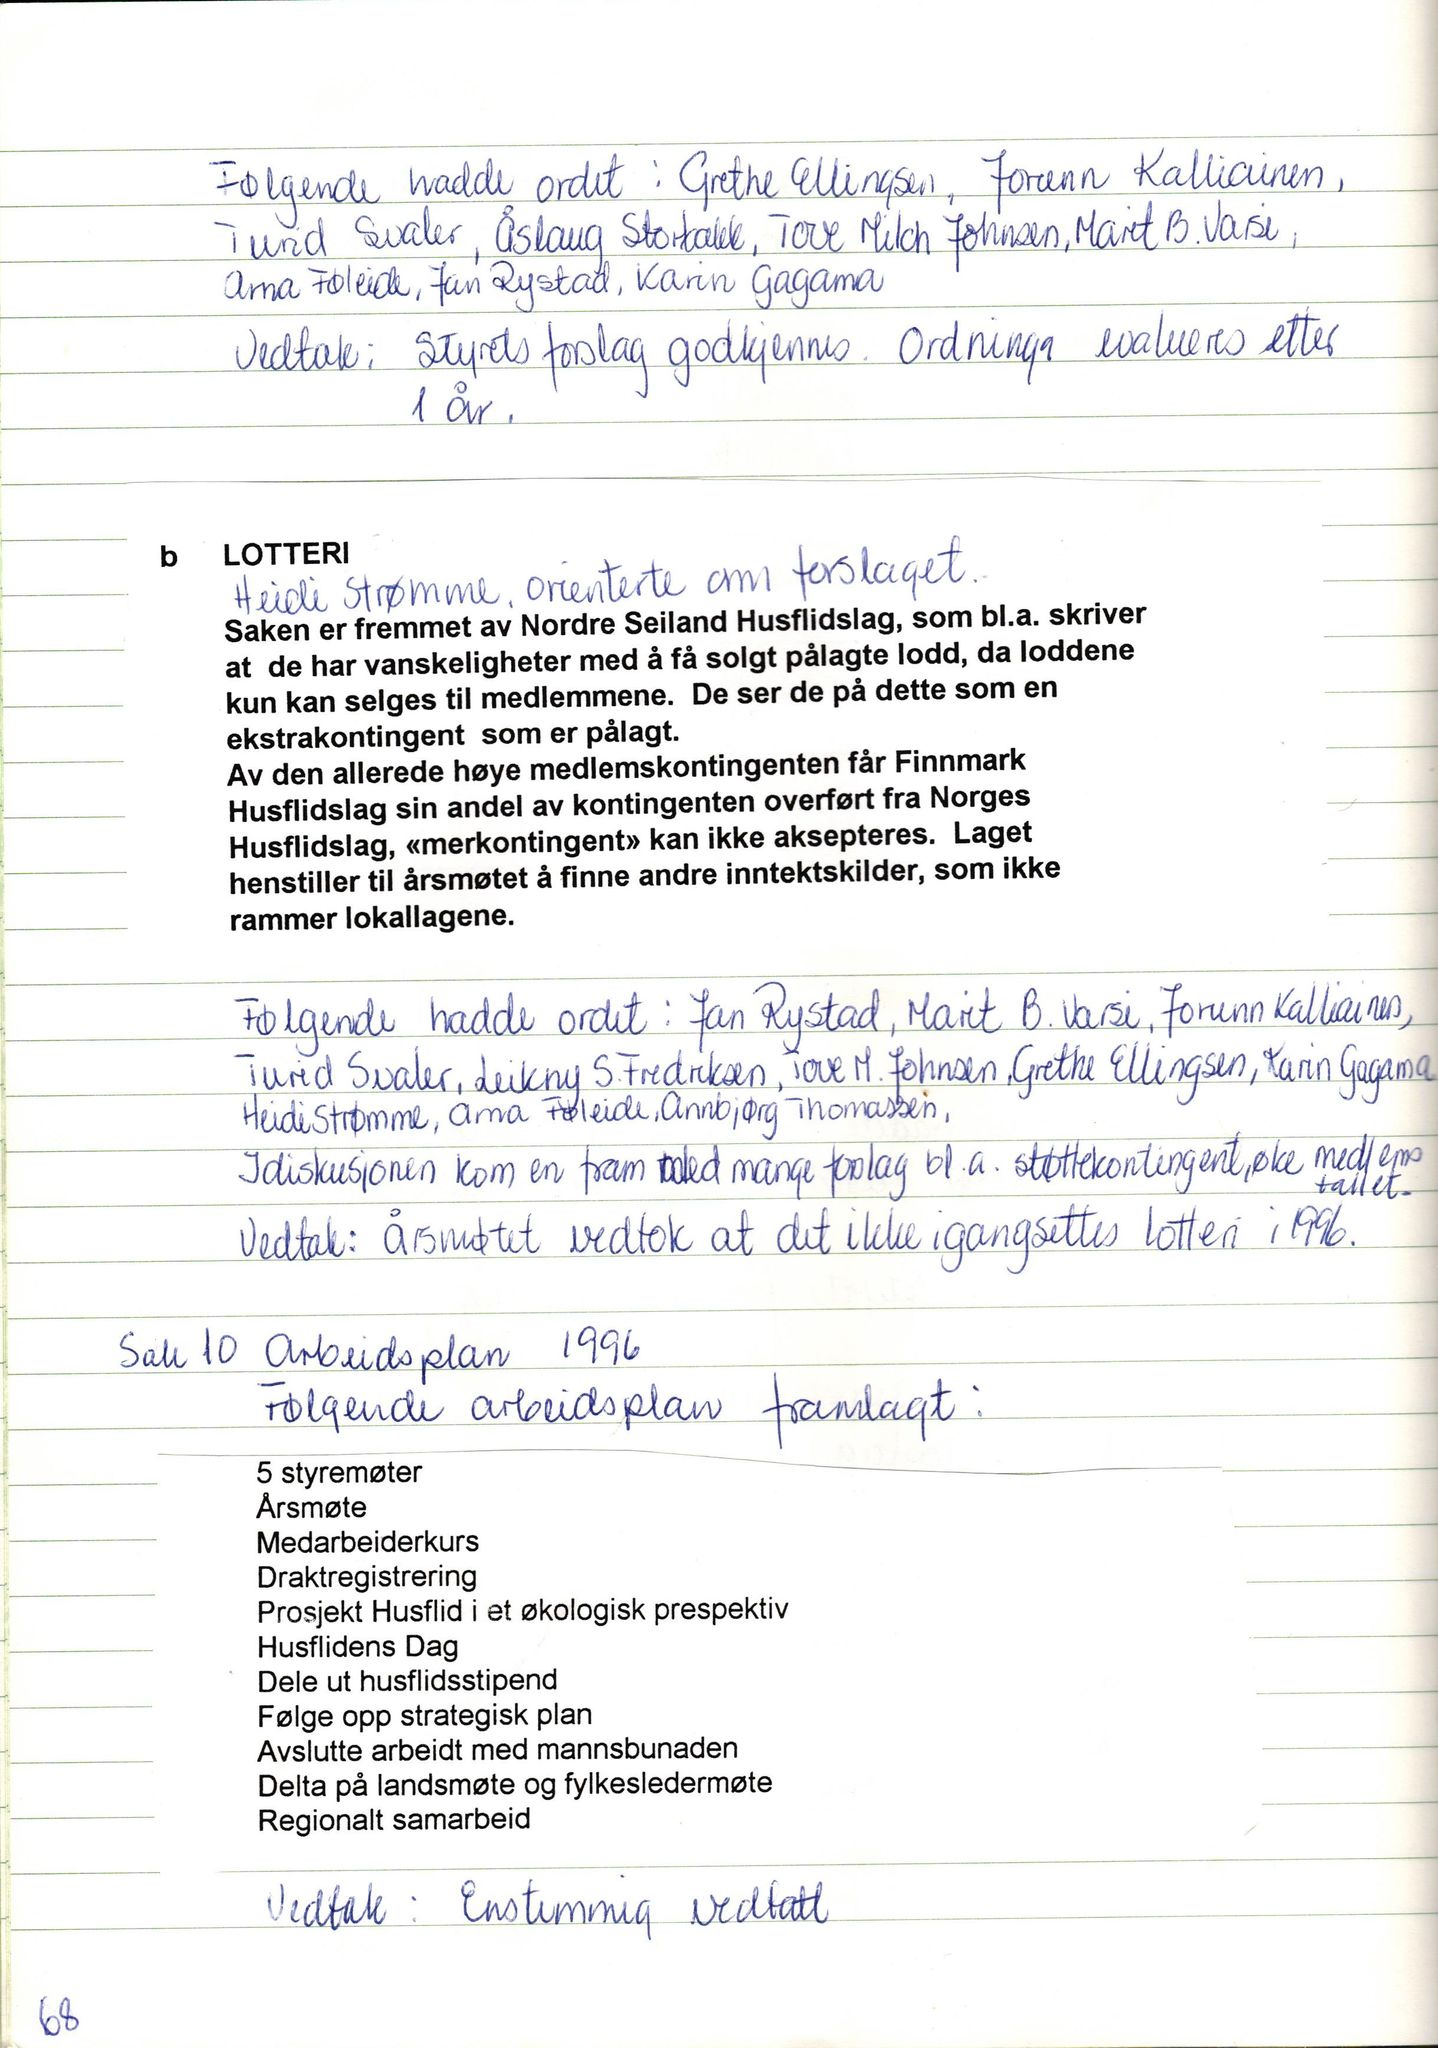 Følgende hadde ordet : Grethe Ellingsen, Jorunn Kalliainen,
Turid Svaler, Åslaug Storbakk, Tove Milch Johnsen, Marit B. Varsi,
Arna Føleide, Jan Rystad, Karin Gagama
Vedtak: Styrets forslag godkjennes. Ordninga evalueres etter
1 år.
b LOTTERI
Heidi Strømme, orienterte om forslaget.
Saken er fremmet av Nordre Seiland Husflidslag, som bl.a. skriver
at de har vanskeligheter med å få solgt pålagte lodd, da loddene
kun kan selges til medlemmene. De ser de på dette som en
ekstrakontingent som er pålagt.
Av den allerede høye medlemskontingenten får Finnmark
Husflidslag sin andel av kontingenten overført fra Norges
Husflidslag, «merkontingent» kan ikke aksepteres. Laget
henstiller til årsmøtet å finne andre inntektskilder, som ikke
rammer lokallagene.
Følgende hadde ordet : Jan Rystad, Marit B. Varsi, Jorunn Kalliainen,
Turid Svaler, Leikny S. Fredriksen, Tove M. Johnsen, Grethe Ellingsen, Karin Gagama
Heidi Strømme, Arna Føleide, Annbjørg Thomassen,
I diskusjonen kom en fram med mange forslag bl.a. støttekontingent, øke medlems
tallet.
Vedtak: Årsmøtet vedtok at det ikke igangsettes lotteri i 1996.
Sak 10 Arbeidsplan 1996
Følgende arbeidsplan framlagt :
5 styremøter
Årsmøte
Medarbeiderkurs
Draktregistrering
Prosjekt Husflid i et økologisk prespektiv
Husflidens Dag
Dele ut husflidsstipend
Følge opp strategisk plan
Avslutte arbeidt med mannsbunaden
Delta på landsmøte og fylkesledermøte
Regionalt samarbeid
Vedtak : Enstemmig vedtatt
68